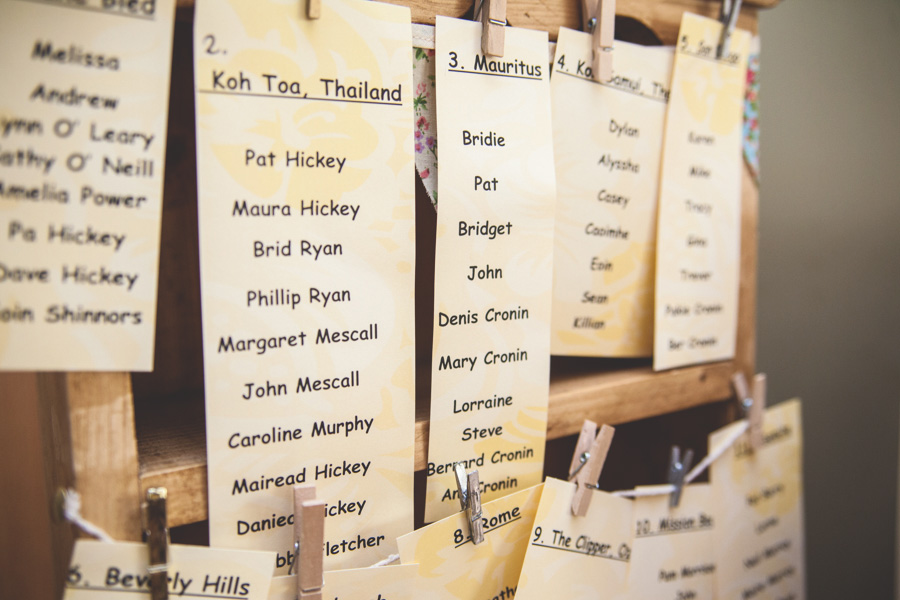 Melissa
Andrew
O' Leary
O' Neill
Amelia Power
Pa Hickey
Dave Hickey
Shinnors
2.
Koh Toa, Thailand
Pat Hickey
Maura Hickey
Brid Ryan
Phillip Ryan
Margaret Mescall
John Mescall
Caroline Murphy
Mairead Hickey
Hickey
Fletcher
3. Mauritus
Bridie
Pat
Bridget
John
Denis Cronin
Mary Cronin
Lorraine
Steve
Bernard Cronin
Cronin
4. Samui,
Dylan
Alyssha
Casey
Caoimhe
Eoin
Sean
Killian
5.
Karen
Mike
Tracy
Trevor
Cronin
Ber Cronin
6. Beverly Hills
8. Rome
9. The Clipper,
10. Mission